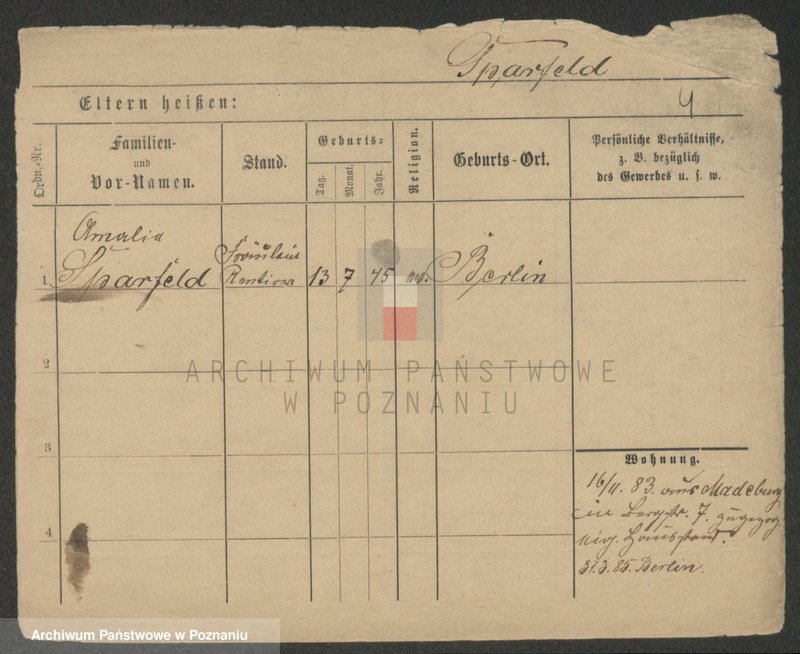 Sparfeld
Eltern heißen:
4
Ordn.-Nr.
Familien-
und
Vor-Namen.
Stand.
Geburts-
Tag.
Monat.
Jahr.
Religion.
Geburts-Ort.
Persönliche Verhältnisse,
z. B. bezüglich
des Gewerbes u. s. w.
Amalie
1 Sparfeld
Fräulein
Rentiere
13 7 45
Berlin
2
3
4
ARCHIWUM PAŃSTWOWE
W POZNANIU
Wohnung.
83. aus Madeburg
in Bergstr. 7.
eig. Hausstand.
31.3.85. Berlin.
Archiwum Państwowe w Poznaniu